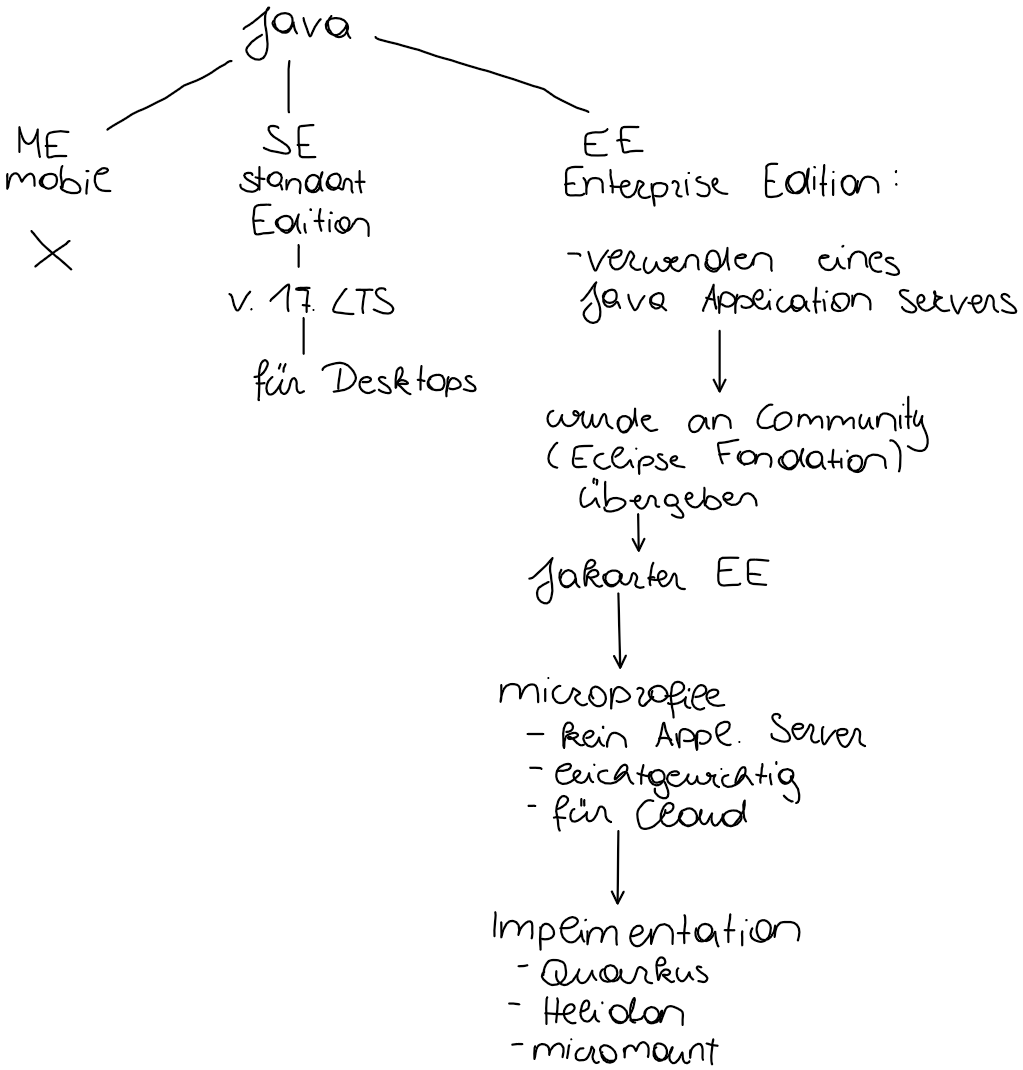 Java
ME
mobile
SE
standart
Edition
v. 17. LTS
für Desktops
EE
Enterprise Edition:
- verwenden eines
Java Application servers
wurde an Community
(Eclipse Fondation)
übergeben
Jakarter EE
microprofile
- kein Appl. Server
- leichtgewichtig
- für Cloud
Implimentation
- Quarkus
- Helidon
- micromount